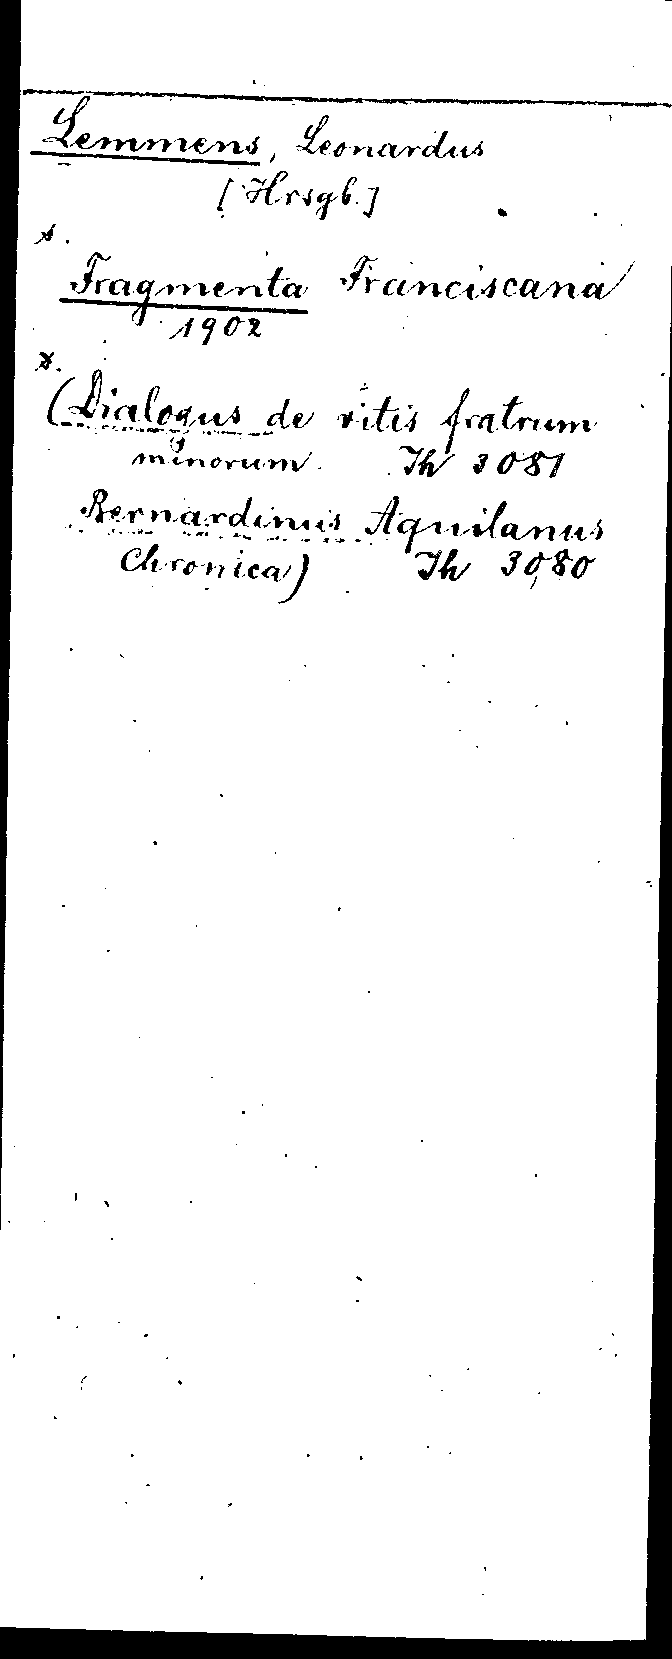 Lemmens, Leonardus
[Hrsgb.]
Fragmenta Franciscana
1902
(Dialogus de vitis fratrum
minorum. Th 3081
Bernardinus Aquilanus
Chronica) Th 3080